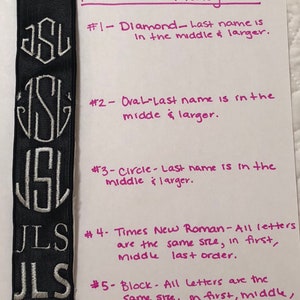 JSL
#1- Diamond- Last name is
in the middle & larger.
JSL
#2- Oval- Last name is in the
middle & larger.
JSL
#3- Circle- Last name is in the
middle & larger.
JLS
#4- Times New Roman- All letters
are the same size, in first,
middle last order.
JLS
#5- Block- All letters are the
same size, in first, middle,